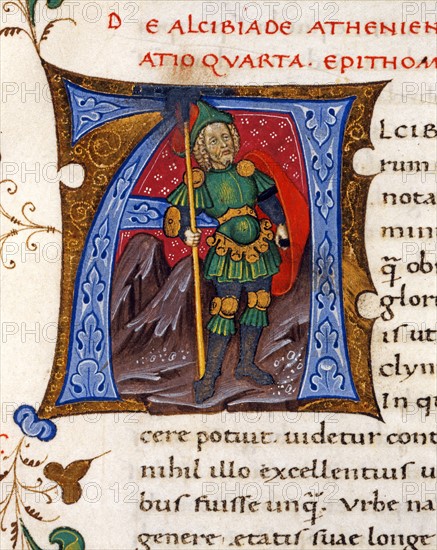 DE ALCIBIADE ATHENIEN
ATIO QVARTA. EPITHOM
ALCIB
rum
nota
mini
q̃ obi
glori
is ut
clyn
In q
cere potuit. uidetur cont
nihil illo excellentius u
bus fuisse unq̃. Vrbe na
genere. etatis suae longe